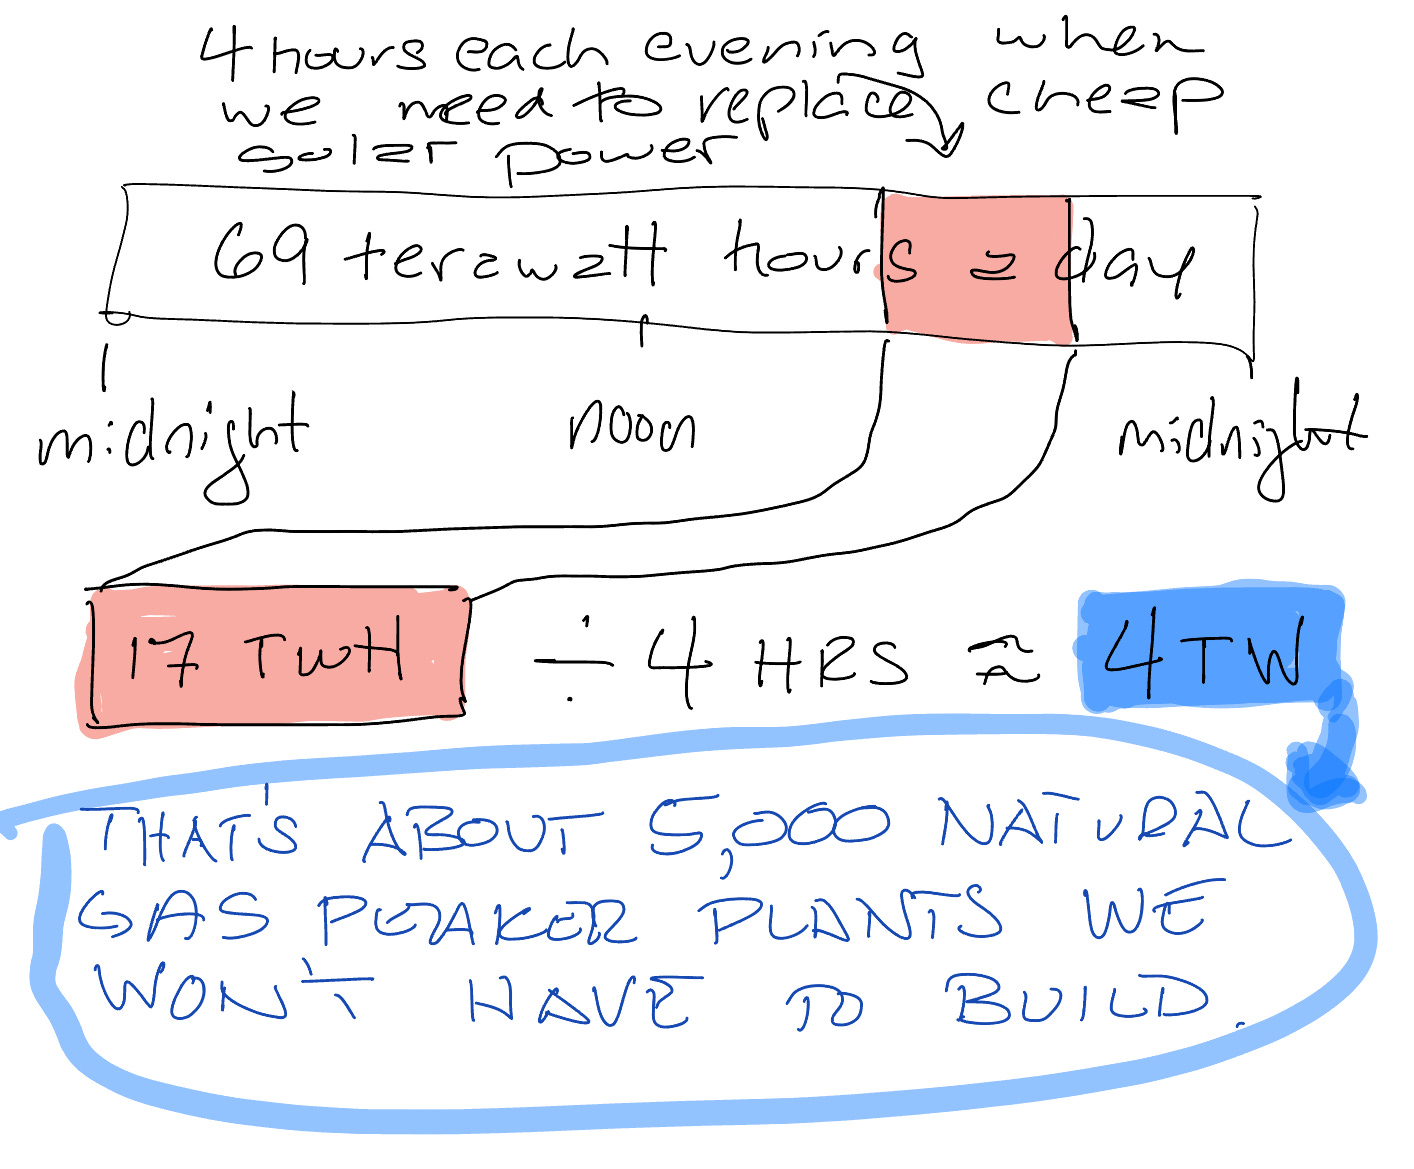 4 hours each evening when
we need to replace cheap
solar power
69 terawatt hours a day
midnight noon midnight
17 TWH ÷ 4 HRS ≈ 4 TW
THAT'S ABOUT 5,000 NATURAL
GAS PEAKER PLANTS WE
WON'T HAVE TO BUILD.